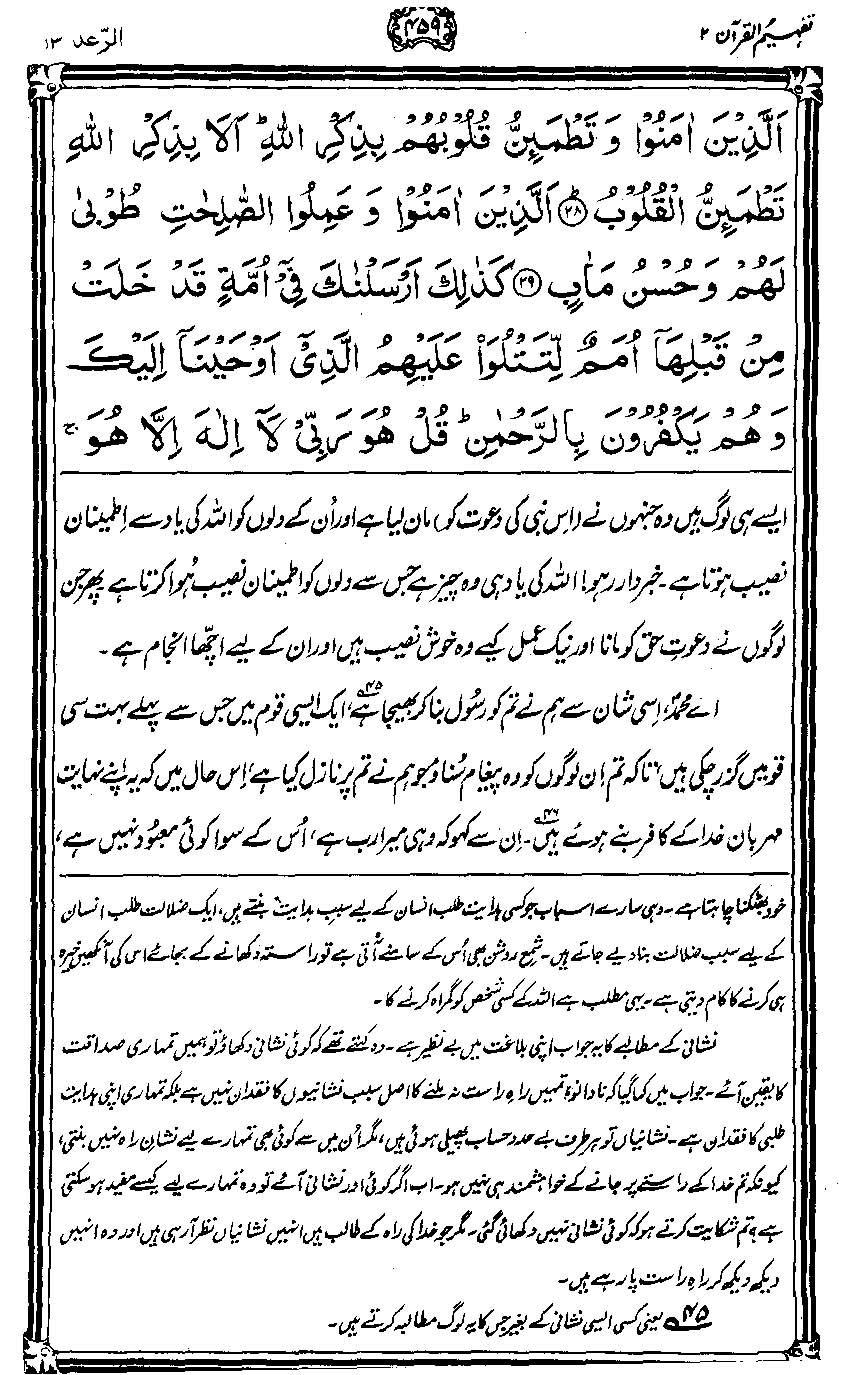 تفہیم القرآن ۲
۴۵۹
الرّعد ۱۳
اَلَّذِيْنَ اٰمَنُوْا وَ تَطْمَىِٕنُّ قُلُوْبُهُمْ بِذِكْرِ اللّٰهِ ؕ اَلَا بِذِكْرِ اللّٰهِ
تَطْمَىِٕنُّ الْقُلُوْبُ ؕ﴿۲۸﴾ اَلَّذِيْنَ اٰمَنُوْا وَ عَمِلُوا الصّٰلِحٰتِ طُوْبٰى
لَهُمْ وَ حُسْنُ مَاٰبٍ ﴿۲۹﴾ كَذٰلِكَ اَرْسَلْنٰكَ فِيْۤ اُمَّةٍ قَدْ خَلَتْ
مِنْ قَبْلِهَاۤ اُمَمٌ لِّتَتْلُوَا۠ عَلَيْهِمُ الَّذِيْۤ اَوْحَيْنَاۤ اِلَيْكَ
وَ هُمْ يَكْفُرُوْنَ بِالرَّحْمٰنِ ؕ قُلْ هُوَ رَبِّيْ لَاۤ اِلٰهَ اِلَّا هُوَ ۚ
ایسے ہی لوگ ہیں وہ جنہوں نے (اِس نبی کی دعوت کو) مان لیا ہے اور اُن کے دلوں کو اللہ کی یاد سے اطمینان
نصیب ہوتا ہے۔ خبردار رہو! اللہ کی یاد ہی وہ چیز ہے جس سے دلوں کو اطمینان نصیب ہُوا کرتا ہے۔ پھر جن
لوگوں نے دعوتِ حق کو مانا اور نیک عمل کیے وہ خوش نصیب ہیں اور ان کے لیے اچھا انجام ہے۔
اے محمدؐ، اِسی شان سے ہم نے تم کو رسُول بنا کر بھیجا ہے۴۵، ایک ایسی قوم میں جس سے پہلے بہت سی
قومیں گزر چکی ہیں، تاکہ تم اِن لوگوں کو وہ پیغام سُناؤ جو ہم نے تم پر نازل کیا ہے، اِس حال میں کہ یہ اپنے نہایت
مہربان خدا کے کافر بنے ہوئے ہیں۴۶۔ اِن سے کہو کہ وہی میرا رب ہے، اُس کے سوا کوئی معبُود نہیں ہے،
خود بھٹکنا چاہتا ہے۔ وہی سارے اسباب جو کسی ہدایت طلب انسان کے لیے سببِ ہدایت بنتے ہیں، ایک ضلالت طلب انسان
کے لیے سببِ ضلالت بنا دیے جاتے ہیں۔ شمعِ روشن بھی اُس کے سامنے آتی ہے تو راستہ دکھانے کے بجائے اس کی آنکھیں خیرہ
ہی کرنے کا کام دیتی ہے۔ یہی مطلب ہے اللہ کے کسی شخص کو گمراہ کرنے کا۔
نشانی کے مطالبے کا یہ جواب اپنی بلاغت میں بے نظیر ہے۔ وہ کہتے تھے کہ کوئی نشانی دکھاؤ تو ہمیں تمہاری صداقت
کا یقین آئے۔ جواب میں کہا گیا کہ نادانو! تمہیں راہِ راست نہ ملنے کا اصل سبب نشانیوں کا فقدان نہیں ہے بلکہ تمہاری اپنی ہدایت
طلبی کا فقدان ہے۔ نشانیاں تو ہر طرف بے حد و حساب پھیلی ہوئی ہیں، مگر اُن میں سے کوئی بھی تمہارے لیے نشانِ راہ نہیں بنتی،
کیونکہ تم خدا کے راستے پر جانے کے خواہشمند ہی نہیں ہو۔ اب اگر کوئی اور نشانی آئے تو وہ تمہارے لیے کیسے مفید ہو سکتی
ہے؟ تم شکایت کرتے ہو کہ کوئی نشانی نہیں دکھائی گئی۔ مگر جو خدا کی راہ کے طالب ہیں انہیں نشانیاں نظر آ رہی ہیں اور وہ انہیں
دیکھ دیکھ کر راہِ راست پا رہے ہیں۔
۴۵ یعنی کسی ایسی نشانی کے بغیر جس کا یہ لوگ مطالبہ کرتے ہیں۔